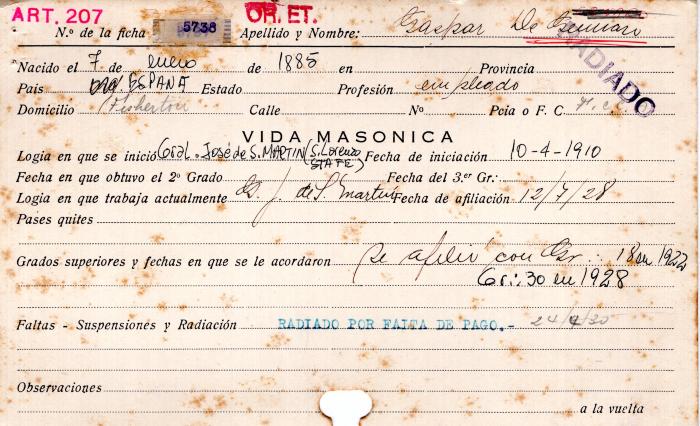 ART. 207 OR. ET.
N.º de la ficha 5738 Apellido y Nombre: Gaspar De Gennaro
RADIADO
Nacido el 7 de enero de 1885 en Provincia
País ESPAÑA Estado Profesión empleado
Domicilio Fisherton Calle Nº Pcia o F. C.
VIDA MASONICA
Logia en que se inició Gral. José de S. MARTIN (S. Lorenzo STA FE) Fecha de iniciación 10-4-1910
Fecha en que obtuvo el 2º Grado Fecha del 3.er Gr.:
Logia en que trabaja actualmente G. J. de S. Martín Fecha de afiliación 12/7/28
Pases quites
Grados superiores y fechas en que se le acordaron se afilió con Gr.: 18 en 1922
Gr.: 30 en 1928
Faltas - Suspensiones y Radiación RADIADO POR FALTA DE PAGO.- 24/9/30
Observaciones
a la vuelta